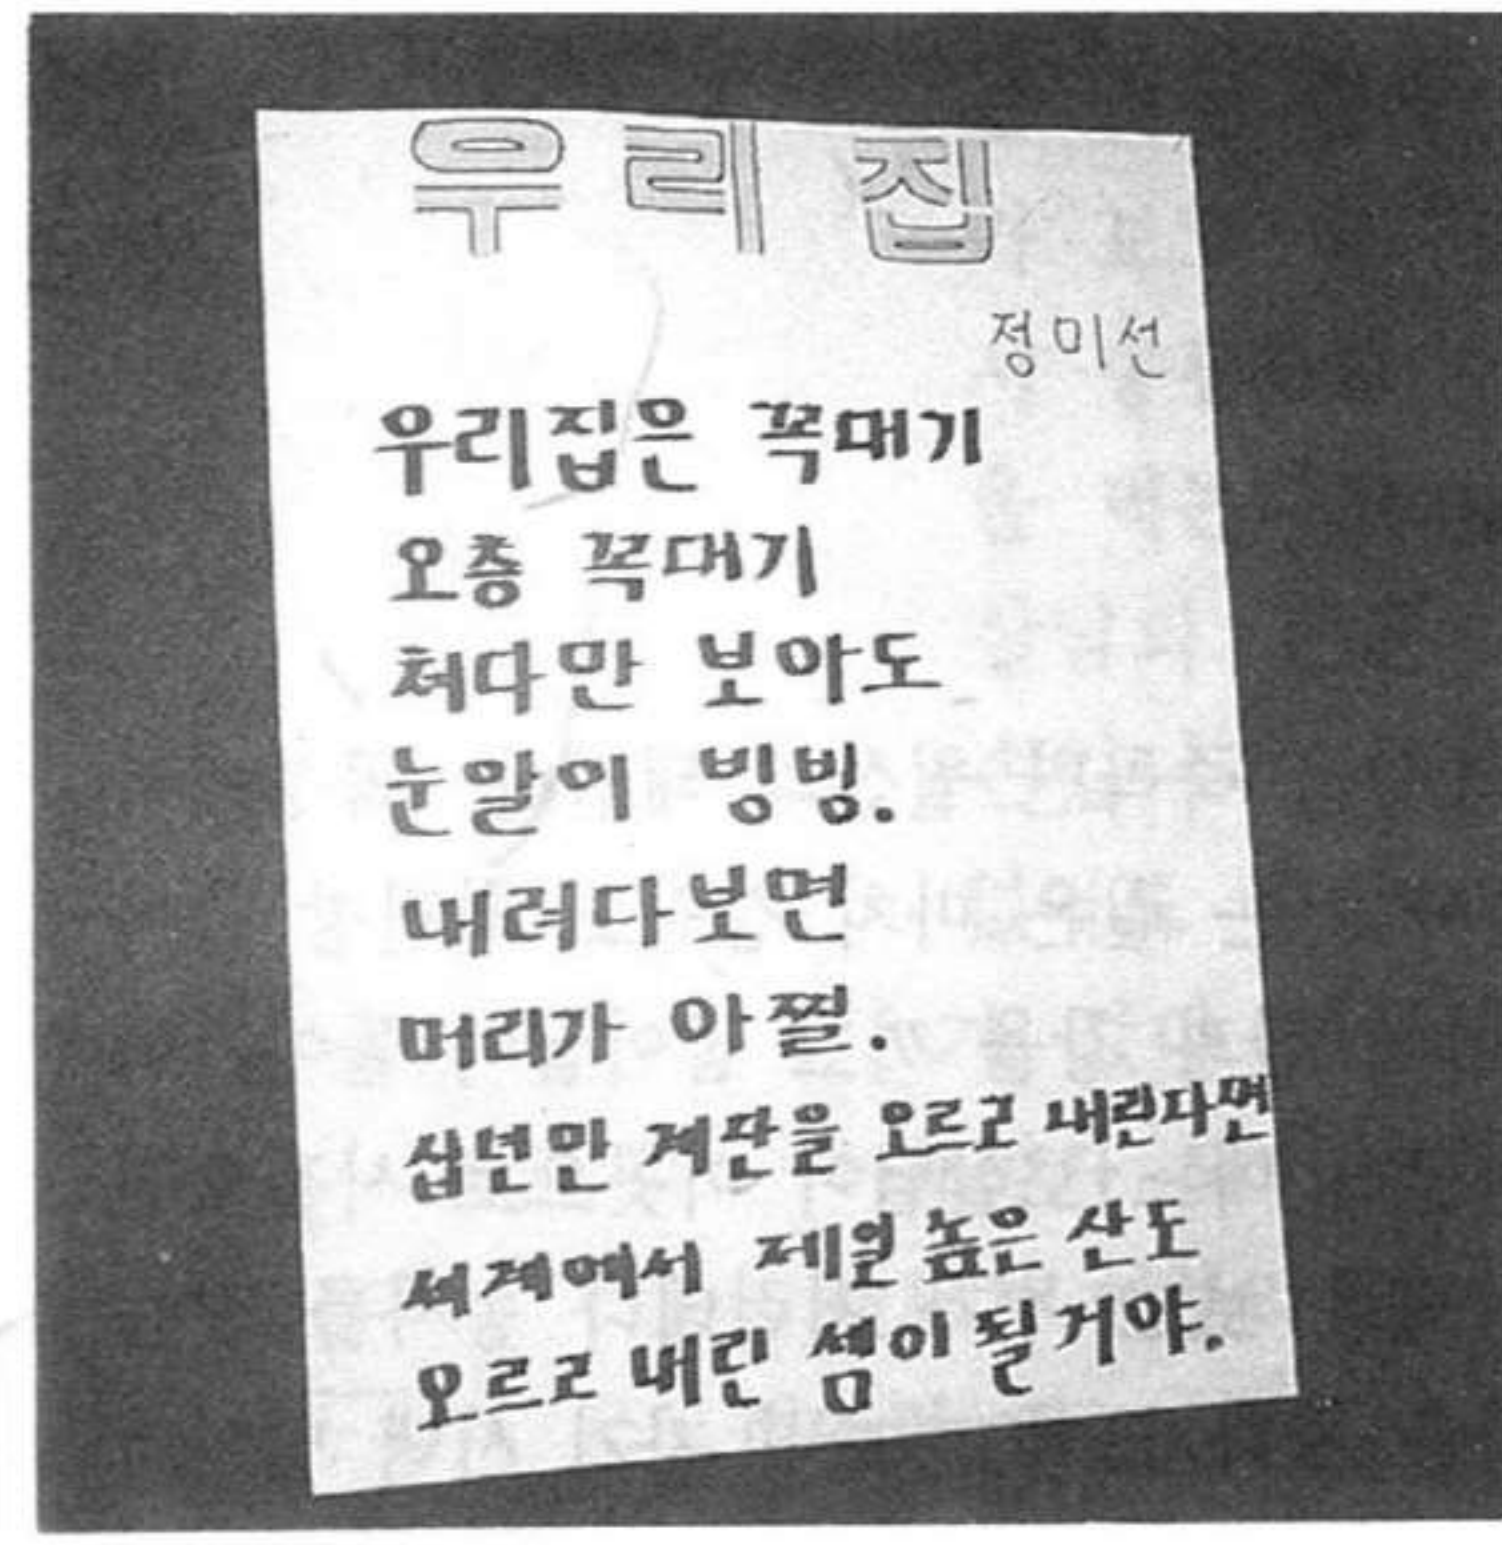 우리 집
정미선
우리집은 꼭대기
오층 꼭대기
처다만 보아도
눈알이 빙빙.
내려다보면
머리가 아찔.
십년만 계단을 오르고 내린다면
세계에서 제일 높은 산도
오르고 내린 셈이 될거야.